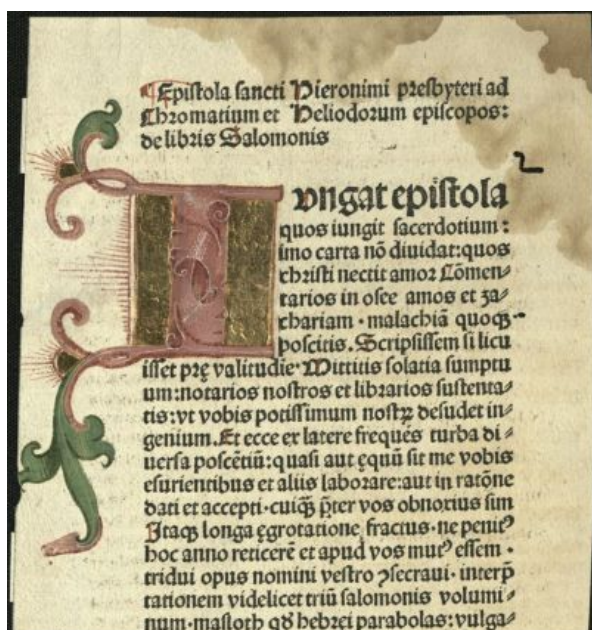 Epistola sancti Hieronimi presbyteri ad
Chromatium et Heliodorum episcopos:
de libris Salomonis
Iungat epistola
quos iungit sacerdotium:
imo carta nõ diuidat: quos
christi nectit amor Cõmen⸗
tarios in osee amos et za⸗
chariam · malachiã quoqꝫ
poscitis. Scripsissem si licu
isset prę valitudie · Mittitis solatia sumptu
um: notarios nostros et librarios sustenta⸗
tis: vt vobis potissimum nostrꝝ desudet in⸗
genium. Et ecce ex latere frequẽs turba di⸗
uersa poscẽtiũ: quasi aut ęquũ sit me vobis
esurientibus et aliis laborare: aut in ratõne
dati et accepti · cuiqꝫ p̃ter vos obnoxius sim
Itaqꝫ longa ęgrotatione fractus · ne penitꝰ
hoc anno reticerẽ et apud vos mutꝰ essem ·
tridui opus nomini vestro ꝯsecraui · interp̃
tationem videlicet triũ salomonis volumi⸗
num · masloth qđ hebręi parabolas: vulga⸗